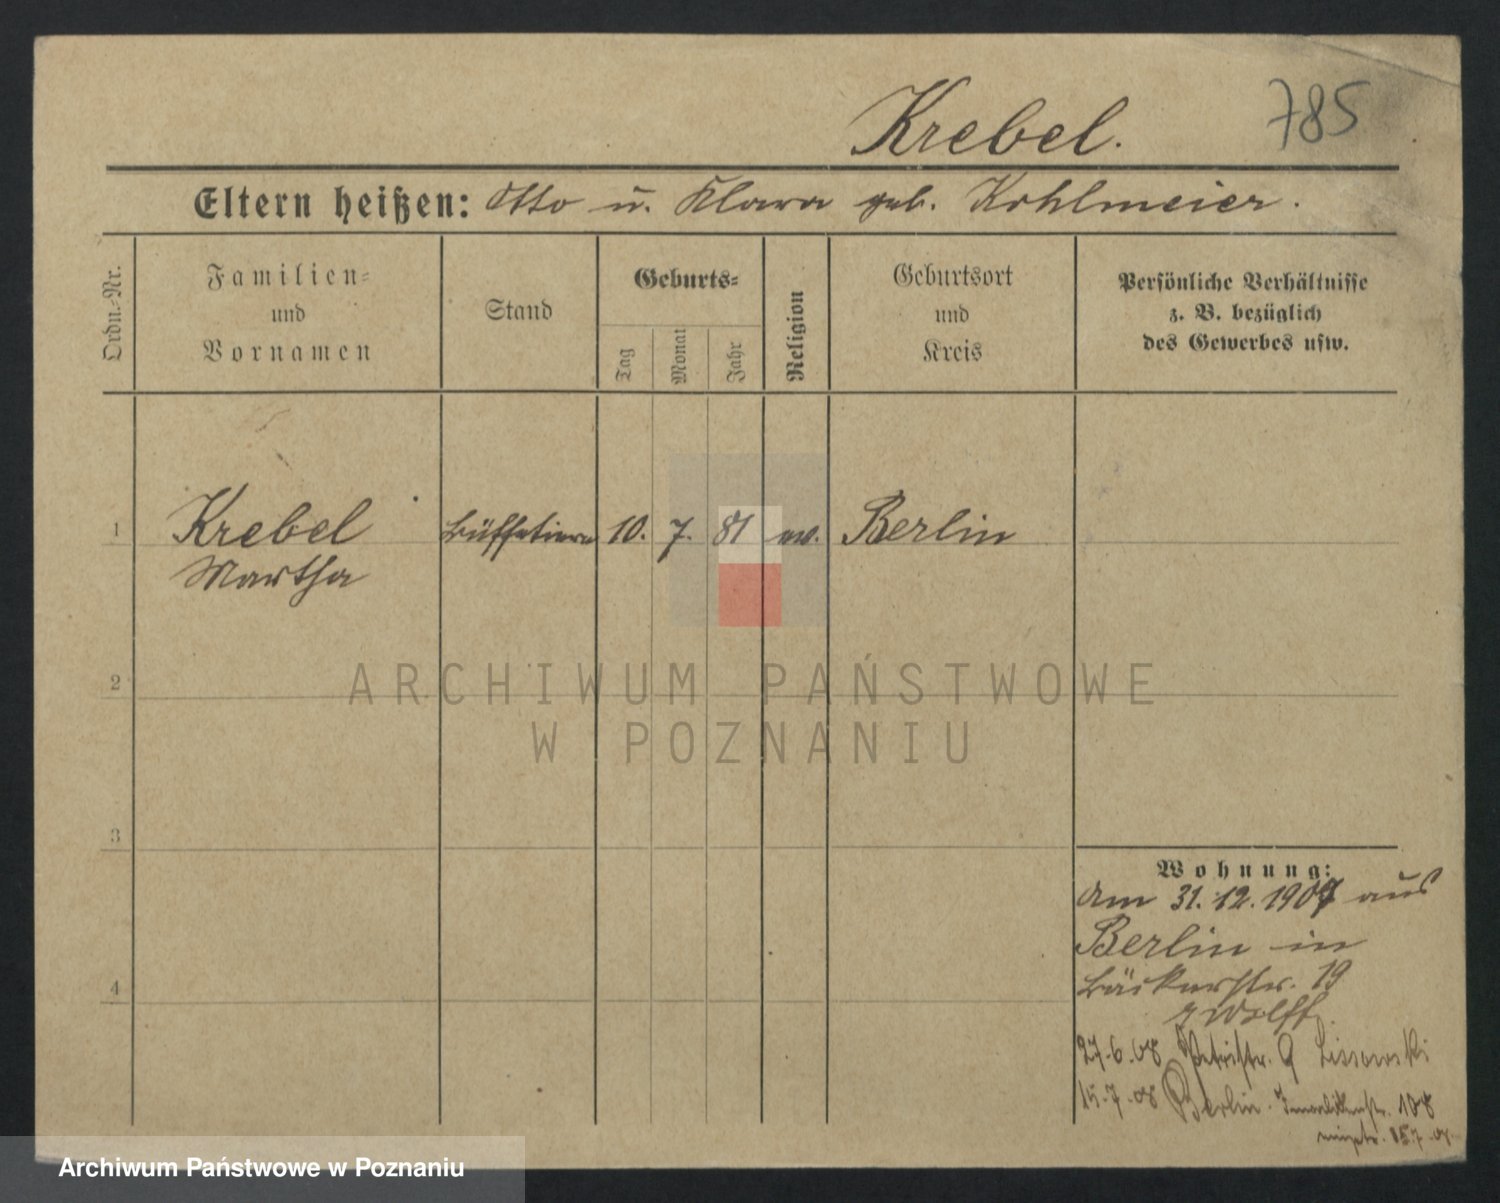 Krebel.
785
Eltern heißen: Otto u. Klara geb. Kohlmeier.
Ordn.-Nr.
Familien-
und
Vornamen
Stand
Geburts-
Tag
Monat
Jahr
Religion
Geburtsort
und
Kreis
Persönliche Verhältnisse
z. B. bezüglich
des Gewerbes usw.
1 Krebel Büffetiere 10. 7. 81 ev. Berlin
Martha
2
3
4
Wohnung:
Am 31.12.1907 aus
Berlin in
Bäckerstr. 19
Wolff.
27.6.08 Petristr. 9 Lissowski
15.7.08 Berlin. 108
ARCHIWUM PAŃSTWOWE
W POZNANIU
Archiwum Państwowe w Poznaniu